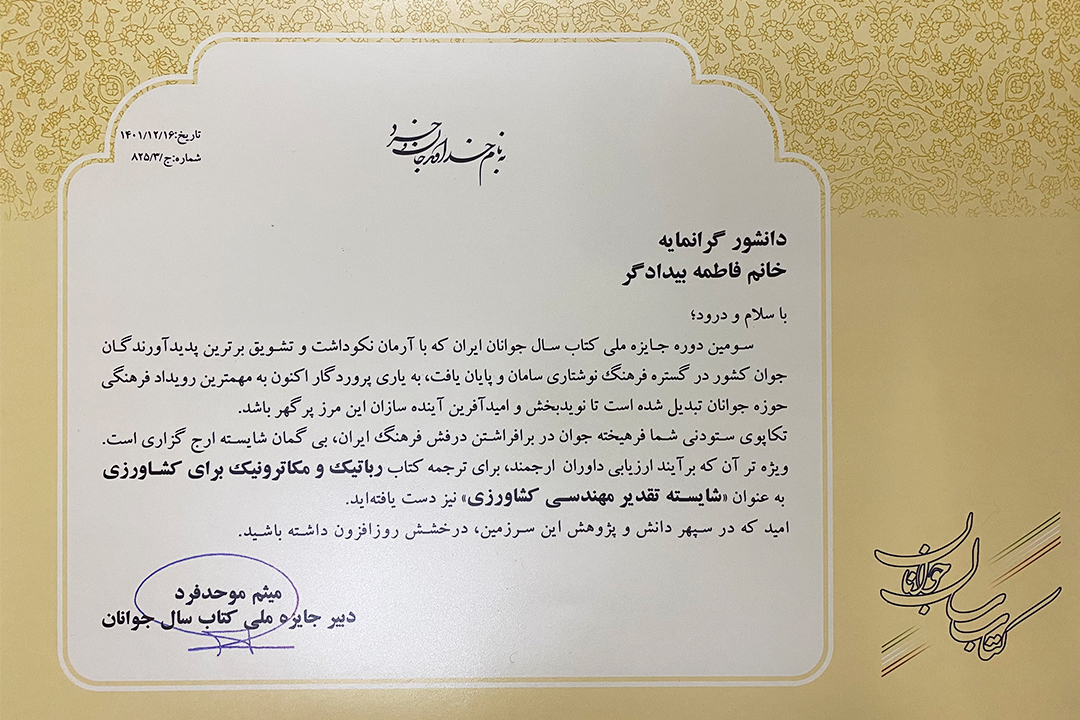 به نام خداوند جان و خرد
تاریخ:۱۴۰۱/۱۲/۱۶
شماره:ج/۸۲۵/۳
دانشور گرانمایه
خانم فاطمه بیدادگر
با سلام و درود؛
سومین دوره جایزه ملی کتاب سال جوانان ایران که با آرمان نکوداشت و تشویق برترین پدیدآورندگان
جوان کشور در گستره فرهنگ نوشتاری سامان و پایان یافت، به یاری پروردگار اکنون به مهمترین رویداد فرهنگی
حوزه جوانان تبدیل شده است تا نویدبخش و امیدآفرین آینده سازان این مرز پر گهر باشد.
تکاپوی ستودنی شما فرهیخته جوان در برافراشتن درفش فرهنگ ایران، بی گمان شایسته ارج گزاری است.
ویژه تر آن که برآیند ارزیابی داوران ارجمند، برای ترجمه کتاب رباتیک و مکاترونیک برای کشاورزی
به عنوان «شایسته تقدیر مهندسی کشاورزی» نیز دست یافته‌اید.
امید که در سپهر دانش و پژوهش این سرزمین، درخشش روزافزون داشته باشید.
میثم موحدفرد
دبیر جایزه ملی کتاب سال جوانان
کتاب سال جوانان